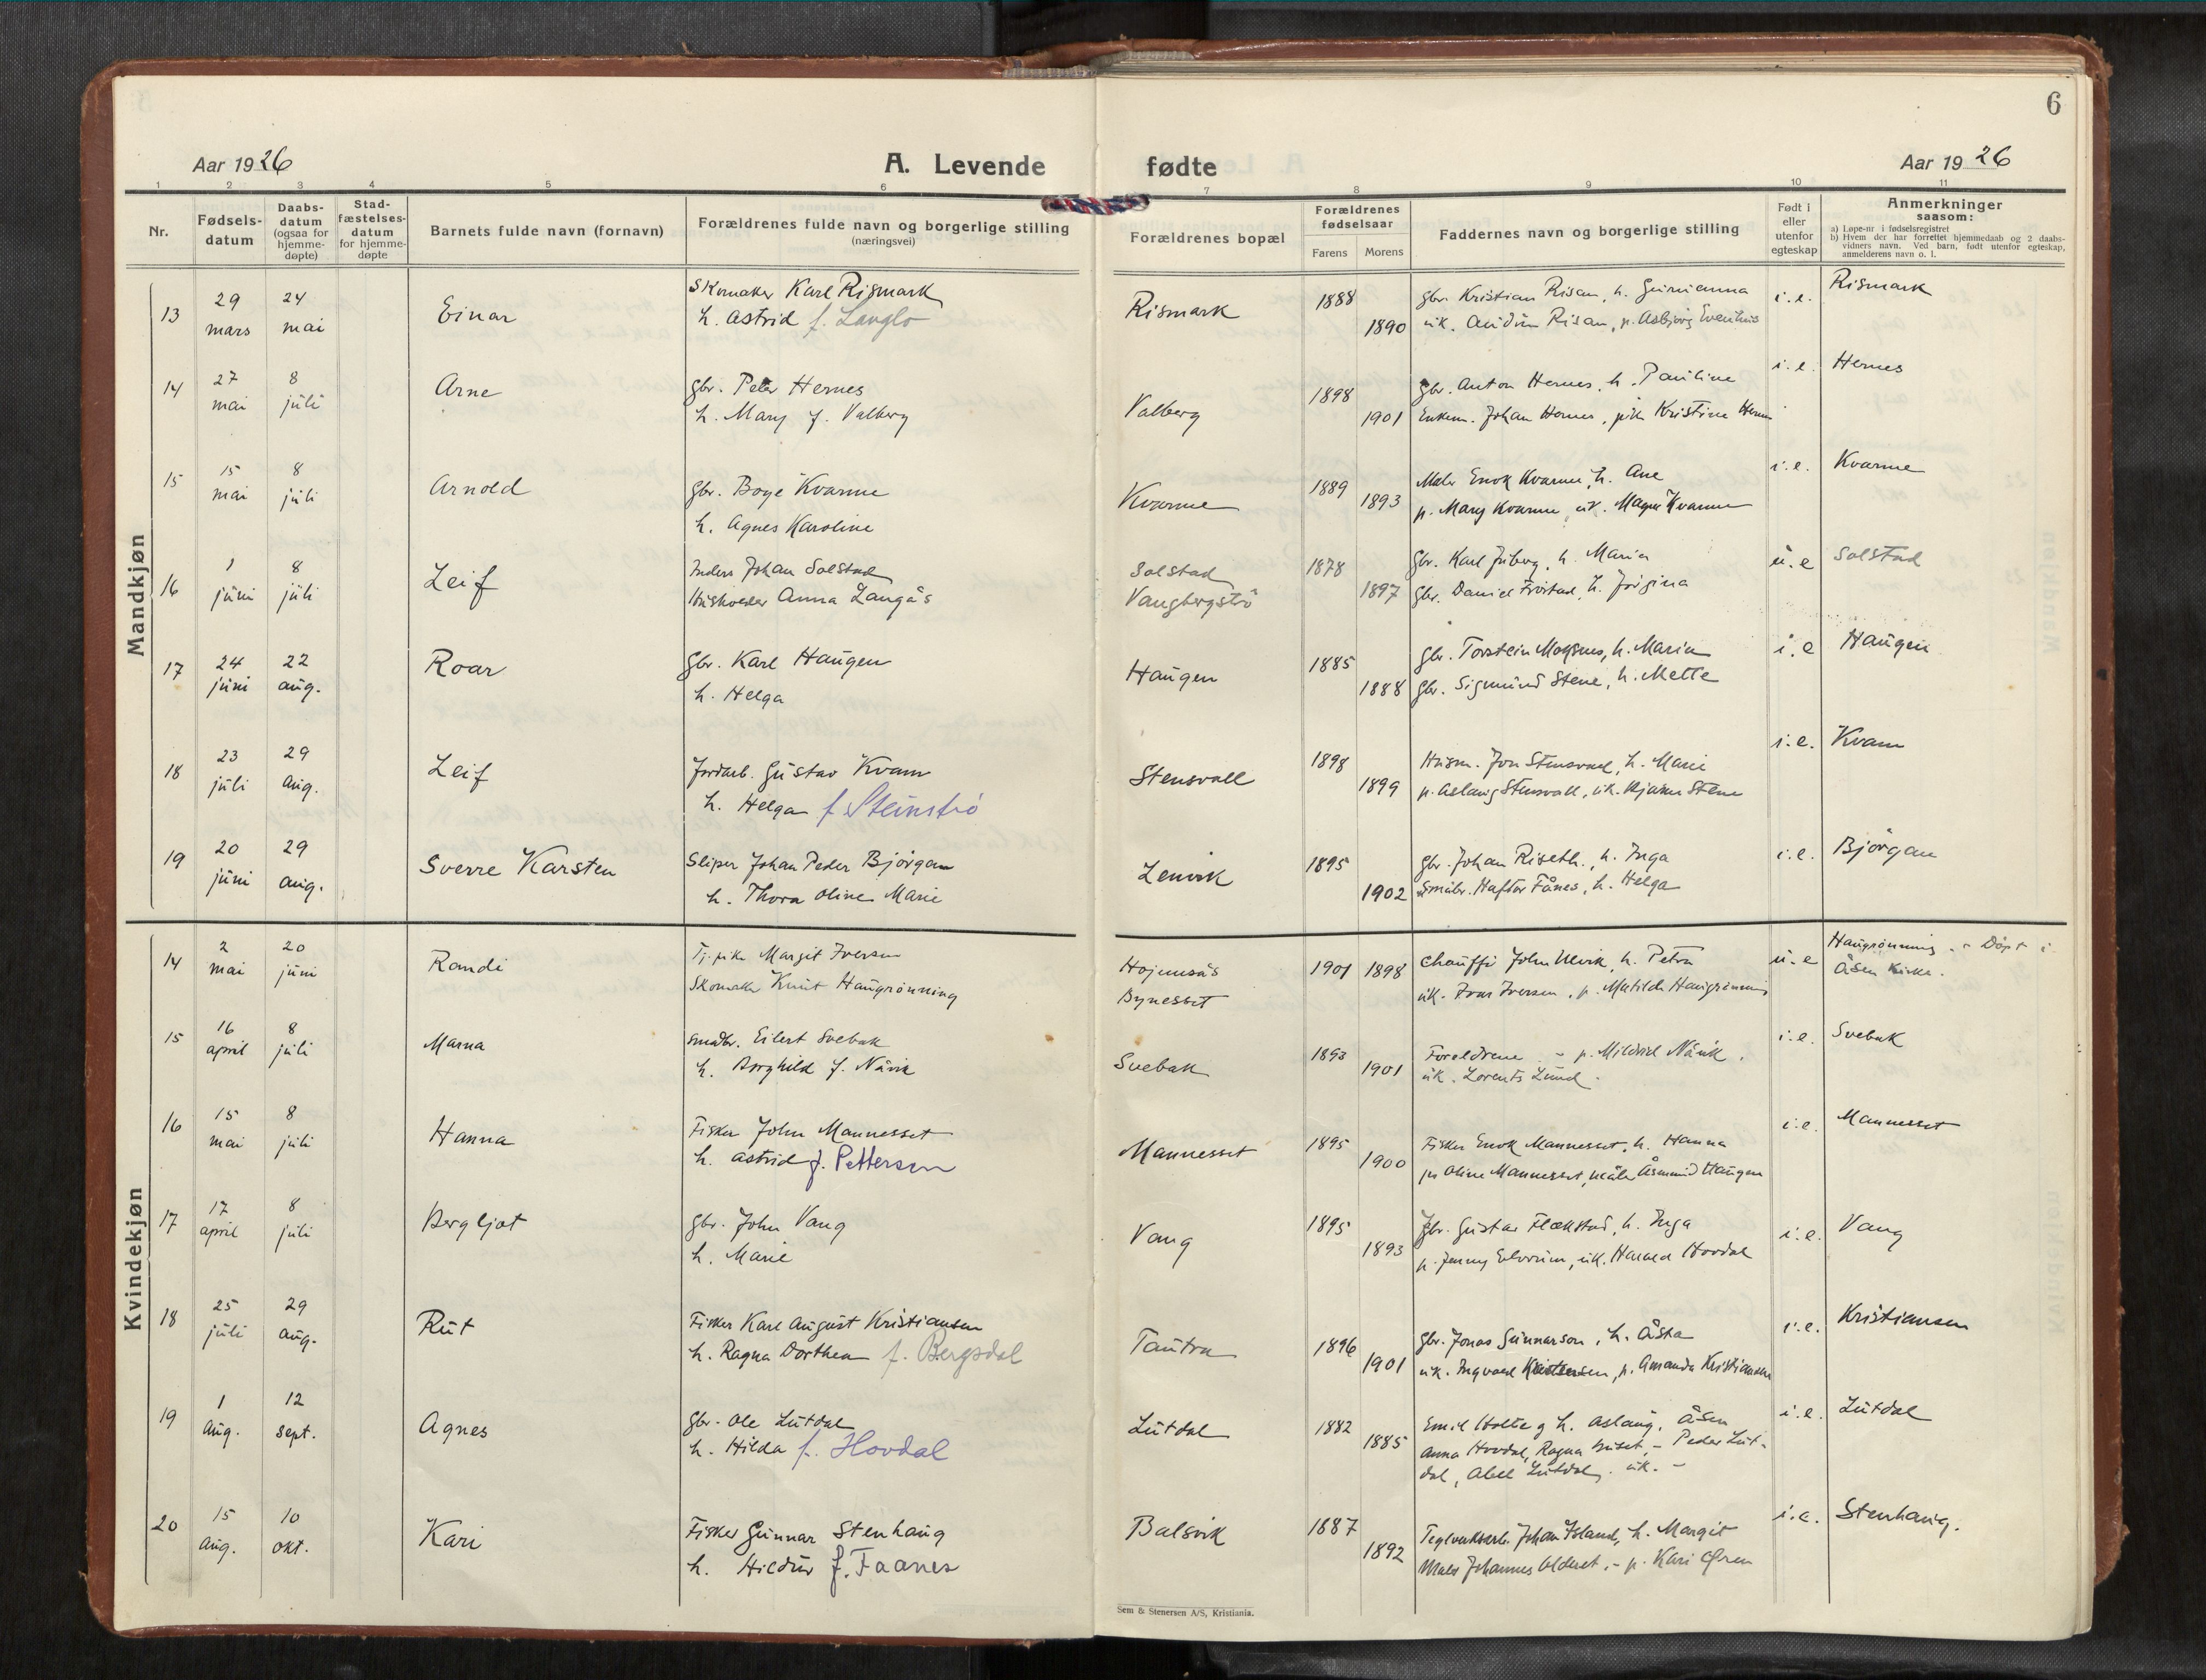 6
Aar 1926
A. Levende fødte
Aar 1926
1 2 3 4 5 6 7 8 9 10 11
Nr.
Fødsels-datum
Daabs-datum (ogsaa for hjemme-døpte)
Stad-fæstelses-datum for hjemme-døpte
Barnets fulde navn (fornavn)
Forældrenes fulde navn og borgerlige stilling (næringsvei)
Forældrenes bopæl
Forældrenes fødselsaar
Farens Morens
Faddernes navn og borgerlige stilling
Født i eller utenfor egteskap
Anmerkninger saasom:
a) Løpe-nr i fødselsregistret
b) Hvem der har forrettet hjemmedaab og 2 daabs-vidners navn. Ved barn, født utenfor egteskap, anmelderens navn o. l.
Mandkjøn
13 29 mars 24 mai Einar
Skomaker Karl Rismark
h. Astrid f. Langlo
Rismark 1888 1890
gbr. Kristian Risan, h.
uk. Audun Risan, p. Asbjørg
i.e. Rismark
14 27 mai 8 juli Arne
Gbr. Peter Hernes
h. Mary f. Valberg
Valberg 1898 1901
gbr. Anton Hernes, h. Pauline
Enkem. Johan Hernes, pike Kristine Hernes
i.e. Hernes
15 15 mai 8 juli Arnold
Gbr. Boye Kvarme
h. Agnes Karoline
Kvarme 1889 1893
Maler Enok Kvarme, h. Ane
p. Mary Kvarme, uk. Magne Kvarme
i.e. Kvarme
16 1 juni 8 juli Leif
Inders Johan Solstad
Anna Langås
Solstad
Vangbergstrø
1878 1897
Gbr. Karl Juberg, h. Maria
gbr. Daniel Frøstad, h. Jørgina
u.e Solstad
17 24 juni 22 aug. Roar
Gbr. Karl Haugen
h. Helga
Haugen 1885 1888
gbr. Torstein Mossnes, h. Maria
gbr. Sigmund Stene, h. Mette
i.e Haugen
18 23 juli 29 aug. Leif
Jordarb. Gustav Kvam
h. Helga f. Steinstrø
Stensvall 1898 1899
Husm. Jon Stensvall, h. Marie
p. Aslaug Stensvall, uk. Bjarne Stene
i.e. Kvam
19 20 juni 29 aug. Sverre Karsten
Sliper Johan Peder Bjørgan
h. Thora Oline Marie
Lenvik 1895 1902
Gbr. Johan Riseth, h. Inga
Småbr. Haftor Fånes, h. Helga
i.e. Bjørgan
Kvindekjøn
14 2 mai 20 juni Randi
Tj. pike Margit Iversen
Skomaker Knut Haugrønning
Hojemsås
Bynesset
1901 1898
Chauffør John Ulvik, h. Petra
uk. Ivar Iversen, p. Matilde Haugrønning
u.e Haugrønning. - Døpt i
Åsen kirke.
15 16 april 8 juli Marna
Småbr. Eilert Svebak
h. Borghild f. Nåvik
Svebak 1893 1901
Foreldrene - p. Mildrid Nåvik.
uk. Lorents Lund.
i.e. Svebak
16 15 mai 8 juli Hanna
Fisker John Mannesset
h. Astrid f. Pettersen
Mannesset 1895 1900
Fisker Enok Mannesset, h. Hanna
p. Oline Mannesset, maler Åsmund Haugen
i.e. Mannesset
17 17 april 8 juli Bergljot
Gbr. John Vang
h. Marie
Vang 1895 1893
Gbr. Gustav Flækstad, h. Inga
p. Jenny Elvrum, uk. Harald Hovdal
i.e. Vang
18 25 juli 29 aug. Rut
Fisker Karl August Kristiansen
h. Ragna Dorthea f. Bergsdal
Tautra 1896 1901
gbr. Jonas Gunnarson, h. Åsta
uk. Ingvald Karlsen, p. Amanda Kristiansen
i.e. Kristiansen
19 1 aug. 12 sept. Agnes
Gbr. Ole Lutdal
h. Hilda f. Hovdal
Lutdal 1882 1885
Emil Holte og h. Aslaug, Åsen
Anna Hovdal, Ragna Buset, - Peder Lut-
dal, Abel Lutdal, uk. -
i.e. Lutdal
20 15 aug. 10 okt. Kari
Fisker Gunnar Stenhaug
h. Hildur f. Faanes
Balsvik 1887 1892
Teglverksarb. Johan Island, h. Margit
Maler Johannes Oldnet. - p. Kari Øren
i.e. Stenhaug.
Sem & Stenersen A/S, Kristiania.